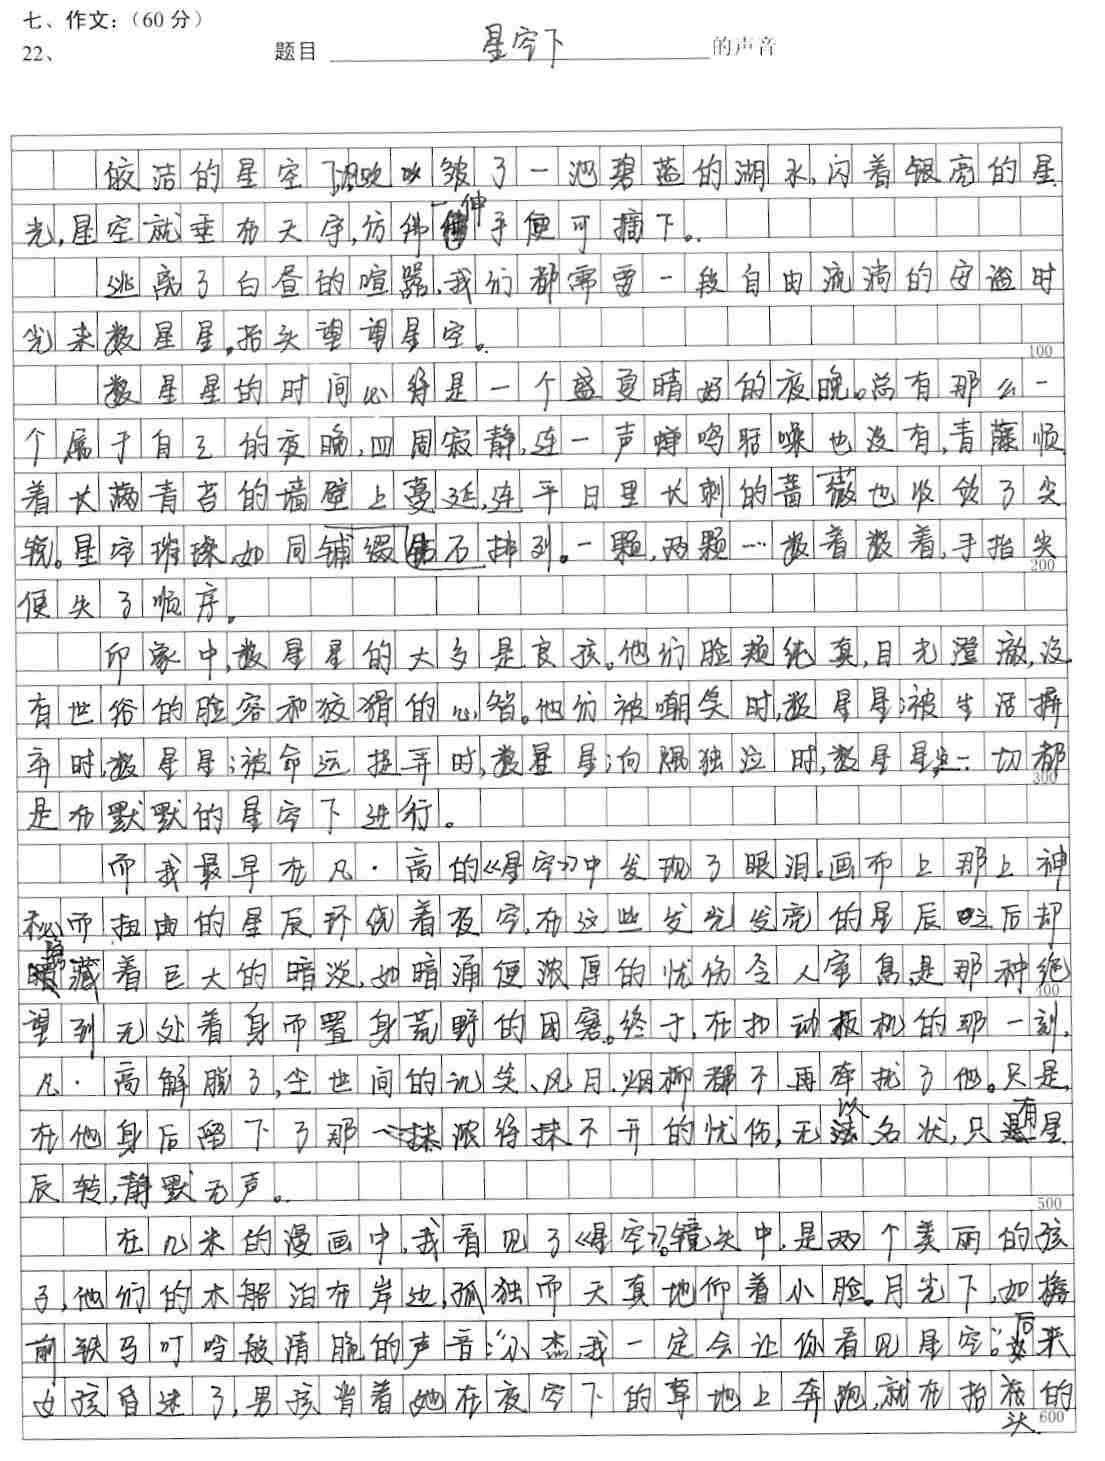 七、作文：（60 分）
22、 题目 星空下 的声音
皎洁的星空下,风吹皱了一池碧蓝的湖水,闪着银亮的星
光,星空就垂在天宇,仿佛一伸手便可摘下。
逃离了白昼的喧嚣,我们都需要一段自由流淌的安谧时
光来数星星。抬头望望星空。
100
数星星的时间必得是一个盛夏晴好的夜晚。总有那么一
个属于自己的夜晚,四周寂静,连一声蝉鸣聒噪也没有,青藤顺
着长满青苔的墙壁上蔓延,连平日里长刺的蔷薇也收敛了尖
锐。星空璀璨,如同铺缀钻石排列。一颗,两颗…数着数着,手指尖
200
便失了顺序。
印象中,数星星的大多是良孩。他们脸颊纯真,目光澄澈,没
有世俗的脸容和狡猾的心智。他们被嘲笑时,数星星;被生活摒
弃时,数星星;被命运捉弄时,数星星;向隅独泣时,数星星…一切都
300
是在默默的星空下进行。
而我最早在凡·高的《星空》中发现了眼泪。画布上那上神
秘而扭曲的星辰环绕着夜空,在这些发光发亮的星辰之后却
暗藏着巨大的暗淡,如暗涌便浓厚的忧伤令人窒息,是那种绝
400
望到无处着身而置身荒野的困窘。终于,在扣动板机的那一刻,
凡·高解脱了,尘世间的讥笑、风月、烟柳都不再牵扰了他。只是,
在他身后留下了那一抹浓得抹不开的忧伤,无以名状,只有星
辰转,静默无声。
500
在几米的漫画中,我看见了《星空》。镜头中,是两个美丽的孩
子,他们的木船泊在岸边,孤独而天真地仰着小脸。月光下,如檐
前铁马叮呤般清脆的声音:“小杰,我一定会让你看见星空。”后来
女孩昏迷了,男孩背着她在夜空下的草地上奔跑,就在抬头的
600